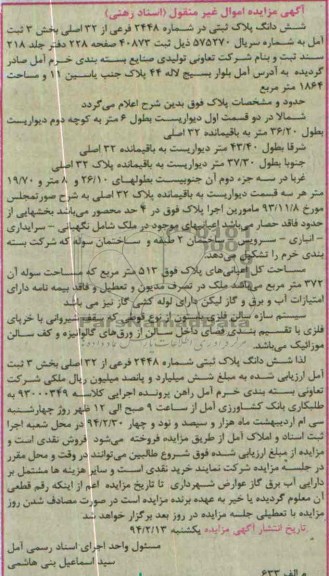 آگهی مزایده اموال غیر منقول (اسناد رهنی)
شش دانگ پلاک ثبتی در شماره ۲۴۴۸ فرعی از ۳۲ اصلی بخش ۳ ثبت
آمل به شماره سریال ۵۷۵۲۷۰ ذیل ثبت ۴۰۸۷۳ صفحه ۲۲۸ دفتر جلد ۲۱۸
سند ثبت و بنام شرکت تعاونی تولیدی صنایع بسته بندی خرم آمل صادر
گردیده به آدرس آمل بلوار بسیج لاله ۴۴ پلاک جنب یاسین ۱۱ و مساحت
۱۸۶۴ متر مربع
حدود و مشخصات پلاک فوق بدین شرح اعلام می‌گردد
شمالا در دو قسمت اول دیواریست بطول ۶ متر به کوچه دوم دیواریست
بطول ۳۶/۲۰ متر به باقیمانده ۳۲ اصلی
شرقا بطول ۴۳/۴۰ متر دیواریست به باقیمانده ۳۲ اصلی
جنوبا بطول ۳۷/۳۰ متر دیواریست به باقیمانده پلاک ۳۲ اصلی
غربا در سه جزء دوم آن جنوبیست بطولهای ۲۶/۱۰ و ۸ متر و ۱۹/۷۰
متر هر سه قسمت دیواریست به باقیمانده پلاک ۳۲ اصلی به شرح صورتمجلس
مورخ ۹۳/۱۱/۸ مامورین اجرا پلاک فوق در ۴ حد محصور می‌باشد بخشهایی از
حدود فاقد حصار می‌باشد اعیانیهای موجود در ملک شامل نگهبانی - سرایداری
- انباری - سرویس ساختمان ۲ طبقه و ساختمان سوله که شرکت بسته
بندی خرم را تشکیل می‌دهد
مساحت کل اعیانی‌های پلاک فوق ۵۱۳ متر مربع که مساحت سوله آن
۳۷۲ متر مربع می‌باشد ملک در تصرف مدیون و تعطیل و فاقد بیمه نامه دارای
امتیازات آب و برق و گاز لیکن دارای لوله کشی گاز نیز می باشد
سیستم سازه سالن فلزی با ستون از نوع قوطی که سقف شیروانی با خرپای
فلزی با تقسیم بندی فضای داخل سالن از ورق‌های گالوانیزه و کف سالن
موزائیک می‌باشد.
لذا شش دانگ پلاک ثبتی شماره ۲۴۴۸ فرعی از ۳۲ اصلی بخش ۳ ثبت
آمل ارزیابی شده به مبلغ شش میلیارد و پانصد میلیون ریال ملکی شرکت
تعاونی بسته بندی خرم آمل راهن پرونده اجرایی کلاسه ۹۳۰۰۰۳۴۹ به
طلبکاری بانک کشاورزی آمل از ساعت ۹ صبح الی ۱۲ ظهر روز چهارشنبه
سی ام اردیبهشت ماه هزار و سیصد و نود و چهار ۹۴/۲/۳۰ در محل شعبه اجرا
ثبت اسناد و املاک آمل از طریق مزایده فروخته می‌شود فروش نقدی است و
مزایده از مبلغ ارزیابی شده فوق شروع طالبین می‌توانند در وقت و محل مقرر
در جلسه مزایده شرکت نمایند خرید نقدی است و سایر هزینه ها مشتمل بر
دارایی آب برق گاز عوارض شهرداری تا تاریخ مزایده اعم از اینکه رقم قطعی
آن معلوم گردیده یا خیر به عهده برنده مزایده است در صورت مصادف شدن روز
مزایده با تعطیلی جلسه مزایده در روز بعد برگزار خواهد شد
تاریخ انتشار آگهی مزایده یکشنبه ۹۴/۲/۱۳
مسئول واحد اجرای اسناد رسمی آمل
سید اسماعیل بنی هاشمی
م الف ۶۳۳